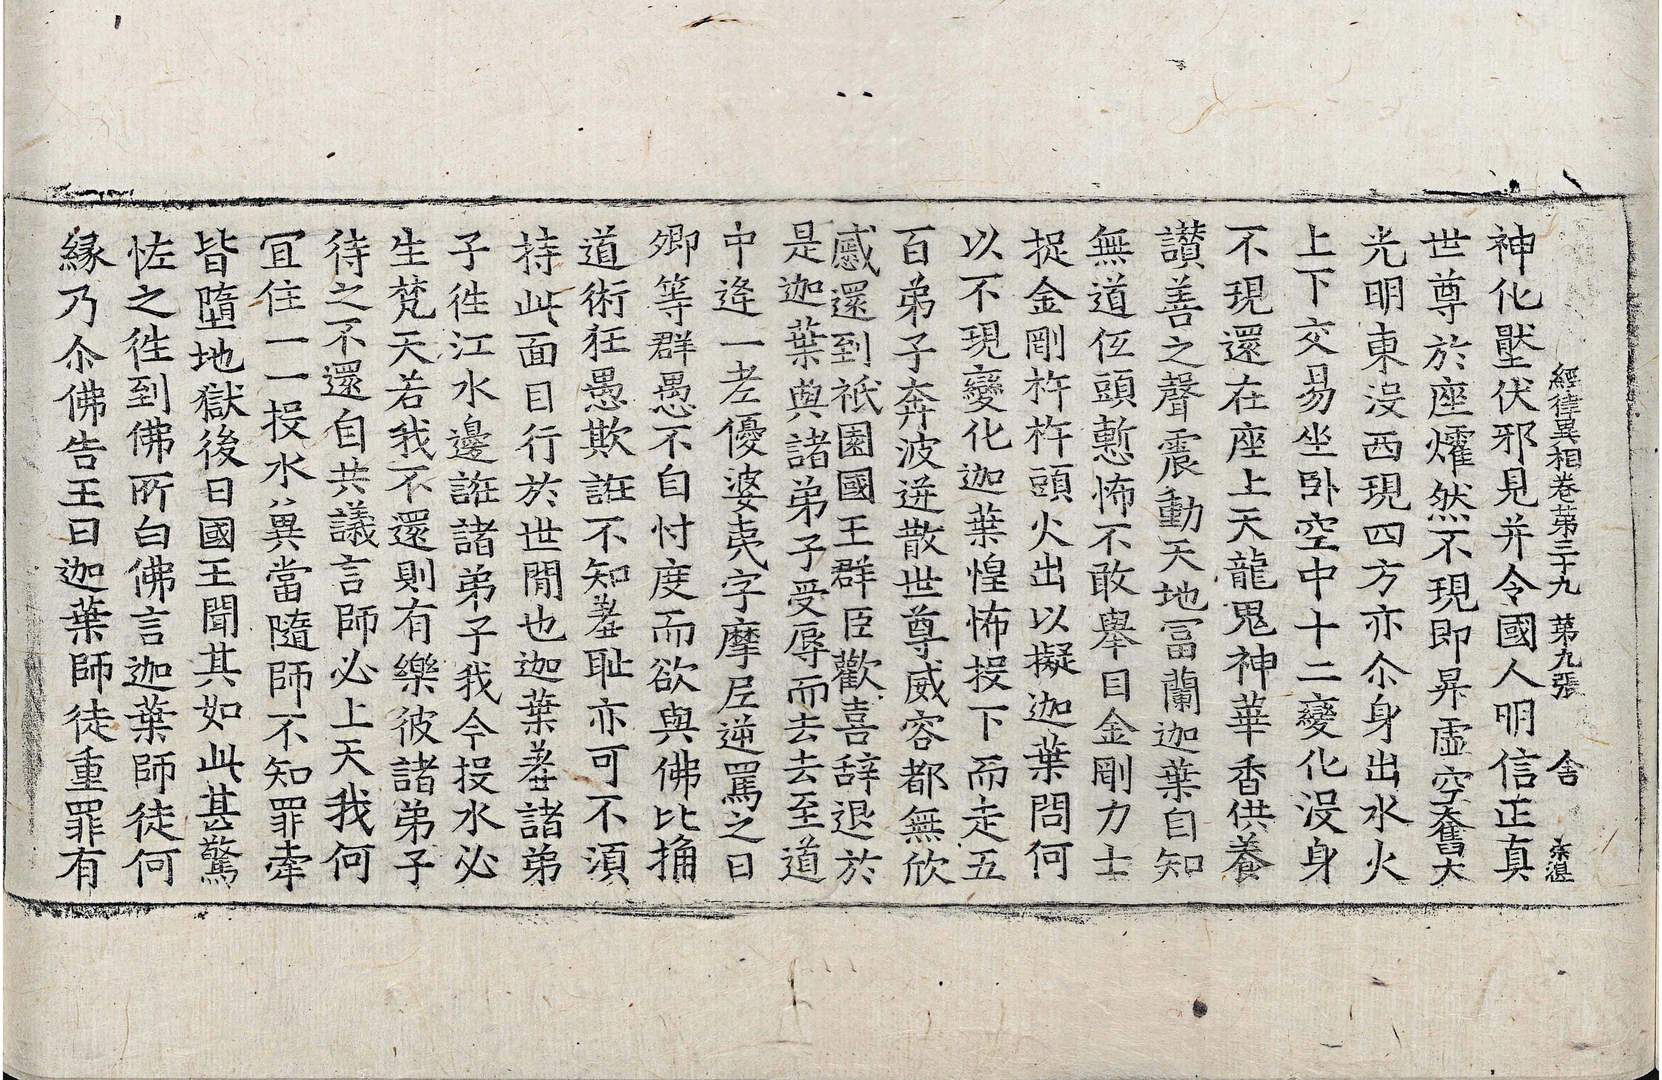 經律異相卷第三十九　第九張　舍
神化壓伏邪見并令國人明信正真
世尊於座燿然不現即昇虛空奮大
光明東没西現四方亦尒身出水火
上下交易坐卧空中十二變化没身
不現還在座上天龍鬼神華香供養
讃善之聲震動天地冨蘭迦葉自知
無道伍頭慙怖不敢舉目金剛力士
捉金剛杵杵頭火出以擬迦葉問何
以不現變化迦葉惶怖投下而走五
百弟子奔波迸散世尊威容都無欣
慼還到祇園國王群臣歡喜辞退於
是迦葉與諸弟子受辱而去去至道
中逢一老優婆夷字摩尼逆罵之曰
卿等群愚不自忖度而欲與佛比捔
道術狂愚欺誑不知羞耻亦可不湏
持此面目行於世閒也迦葉羞諸弟
子徃江水邊誑諸弟子我今投水必
生梵天若我不還則有樂彼諸弟子
待之不還自共議言師必上天我何
冝住一一投水兾當隨師不知罪牽
皆墮地獄後日國王聞其如此甚驚
恠之徃到佛所白佛言迦葉師徒何
縁乃尒佛告王曰迦葉師徒重罪有